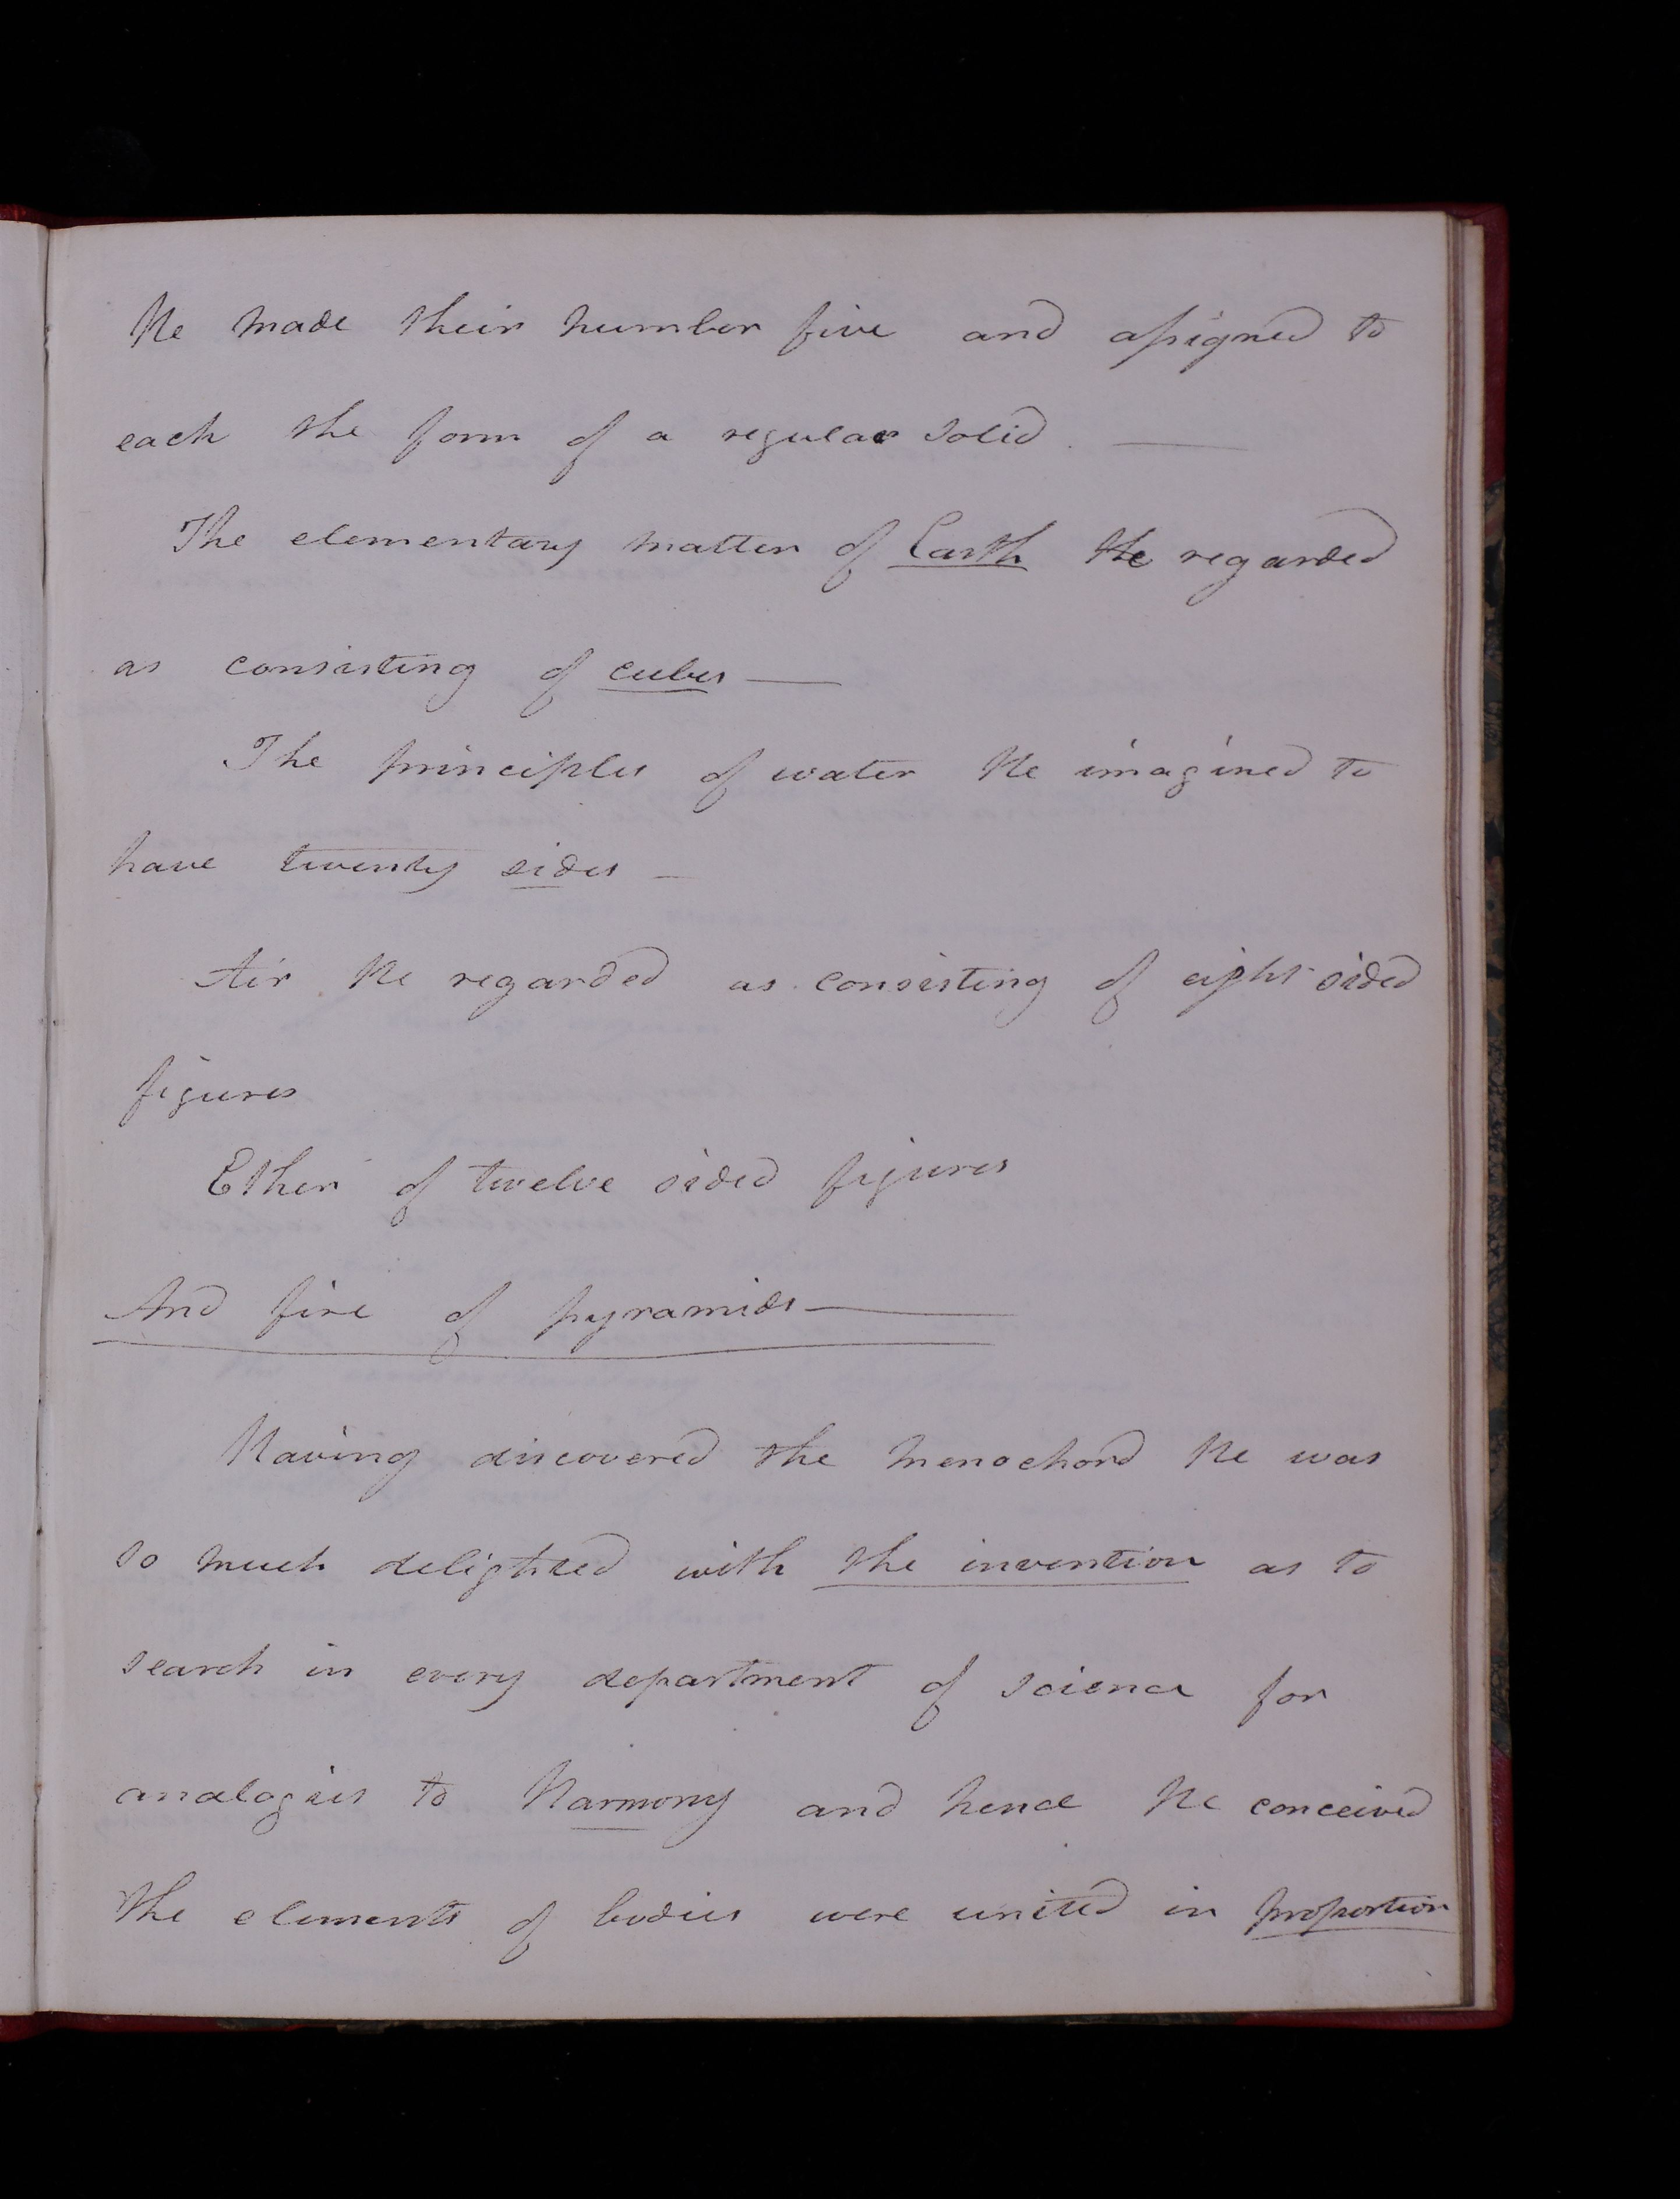 He made their number five and assigned to
each the form of a regular solid. —
The elementary matter of Earth He regarded
as consisting of cubes —
The principles of water He imagined to
have twenty sides —
Air He regarded as consisting of eight sided
figures
Ether of twelve sided figures
And fire of pyramids —
Having discovered the menochord He was
so much delighted with the invention as to
search in every department of science for
analogies to Harmony and hence He conceived
the elements of bodies were united in proportion